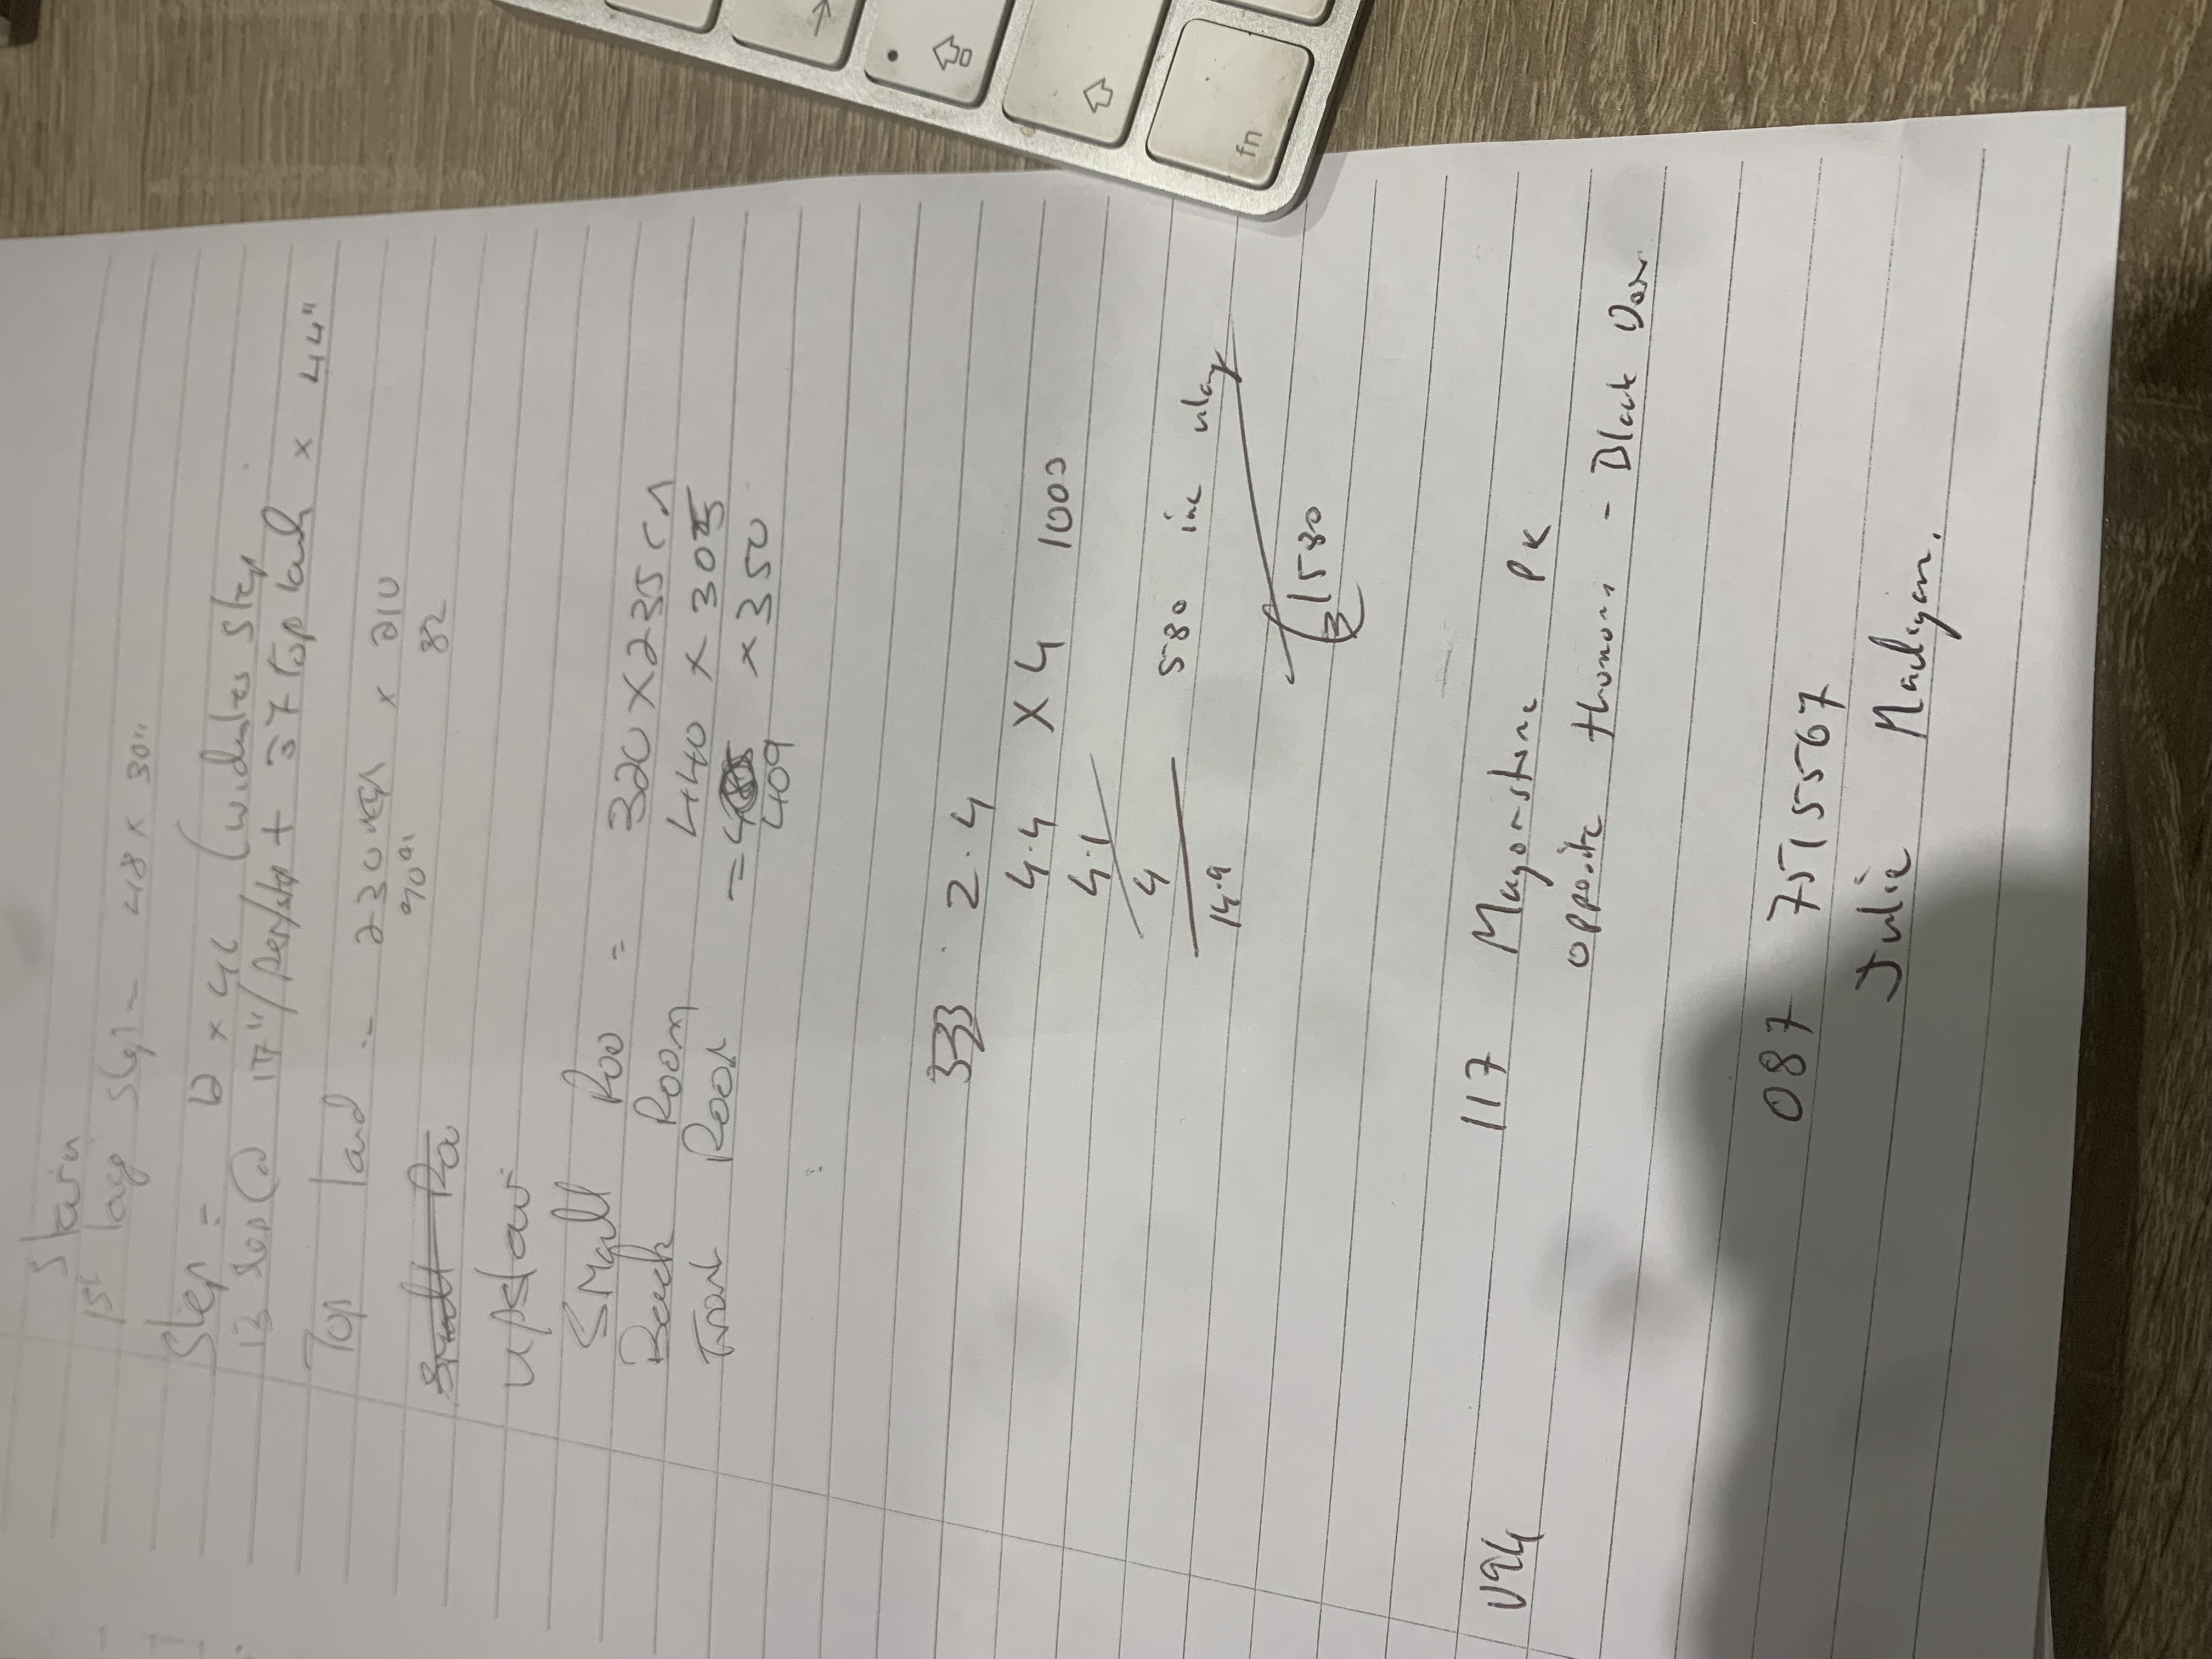 Stairs
1st large Step - 48 x 30"
Step = 12 x 46 (widest Step
13 Step @ 17"/per/step + 37 top land x 44"
Top land - 230 x 210
90" 82
Small Roo
Upstair
Small Roo = 320 x 235 cm
Back Room 440 x 305
Front Room = x 350
409
333 . 2.4
4.4 x 4 1000
4.1
4 580 inc
14.9
1580
117 PK
opposite - Black Door
V94
087 7515567
Julie Madigan.
fn